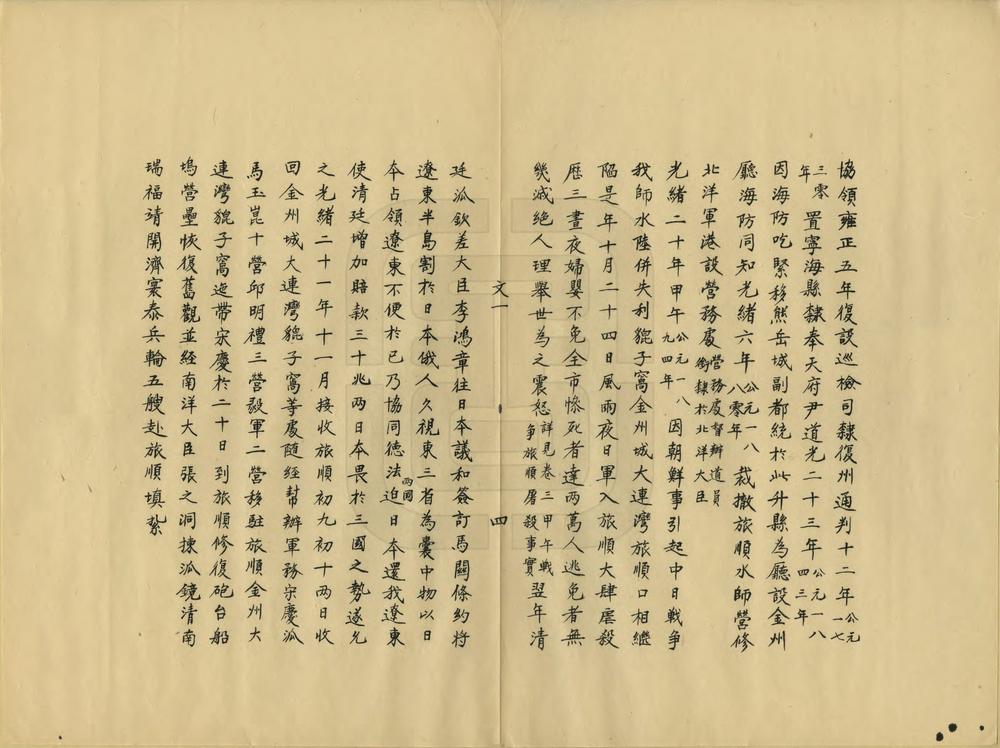 協領雍正五年復設巡檢司隸復州通判十二年公元一七
三零年置寧海縣隸奉天府尹道光二十三年公元一八四三年
因海防吃緊移熊岳城副都統於此升縣為廳設金州
廳海防同知光緒六年公元一八八零年裁撤旅順水師營修
北洋軍港設營務處營務處督辦道員銜隸於北洋大臣
光緒二十年甲午公元一八九四年因朝鮮事引起中日戰爭
我師水陸併失利貔子窩金州城大連灣旅順口相繼
陷是年十月二十四日風雨夜日軍入旅順大肆虐殺
歷三晝夜婦嬰不免全市慘死者達兩萬人逃免者無
幾滅絕人理舉世為之震怒詳見卷三甲午戰爭旅順屠殺事實翌年清
文一 四
廷派欽差大臣李鴻章往日本議和簽訂馬關條約將
遼東半島割於日本俄人久視東三省為囊中物以日
本占領遼東不便於己乃協同德法兩國迫日本還我遼東
使清廷增加賠款三十兆兩日本畏於三國之勢遂允
之光緒二十一年十一月接收旅順初九初十兩日收
回金州城大連灣貔子窩等處隨經幫辦軍務宋慶派
馬玉崑十營邱明禮三營毅軍二營移駐旅順金州大
連灣貔子窩迤帶宋慶於二十日到旅順修復砲台船
塢營壘恢復舊觀並經南洋大臣張之洞揀派鏡清南
瑞福靖開濟寰泰兵輪五艘赴旅順填紮